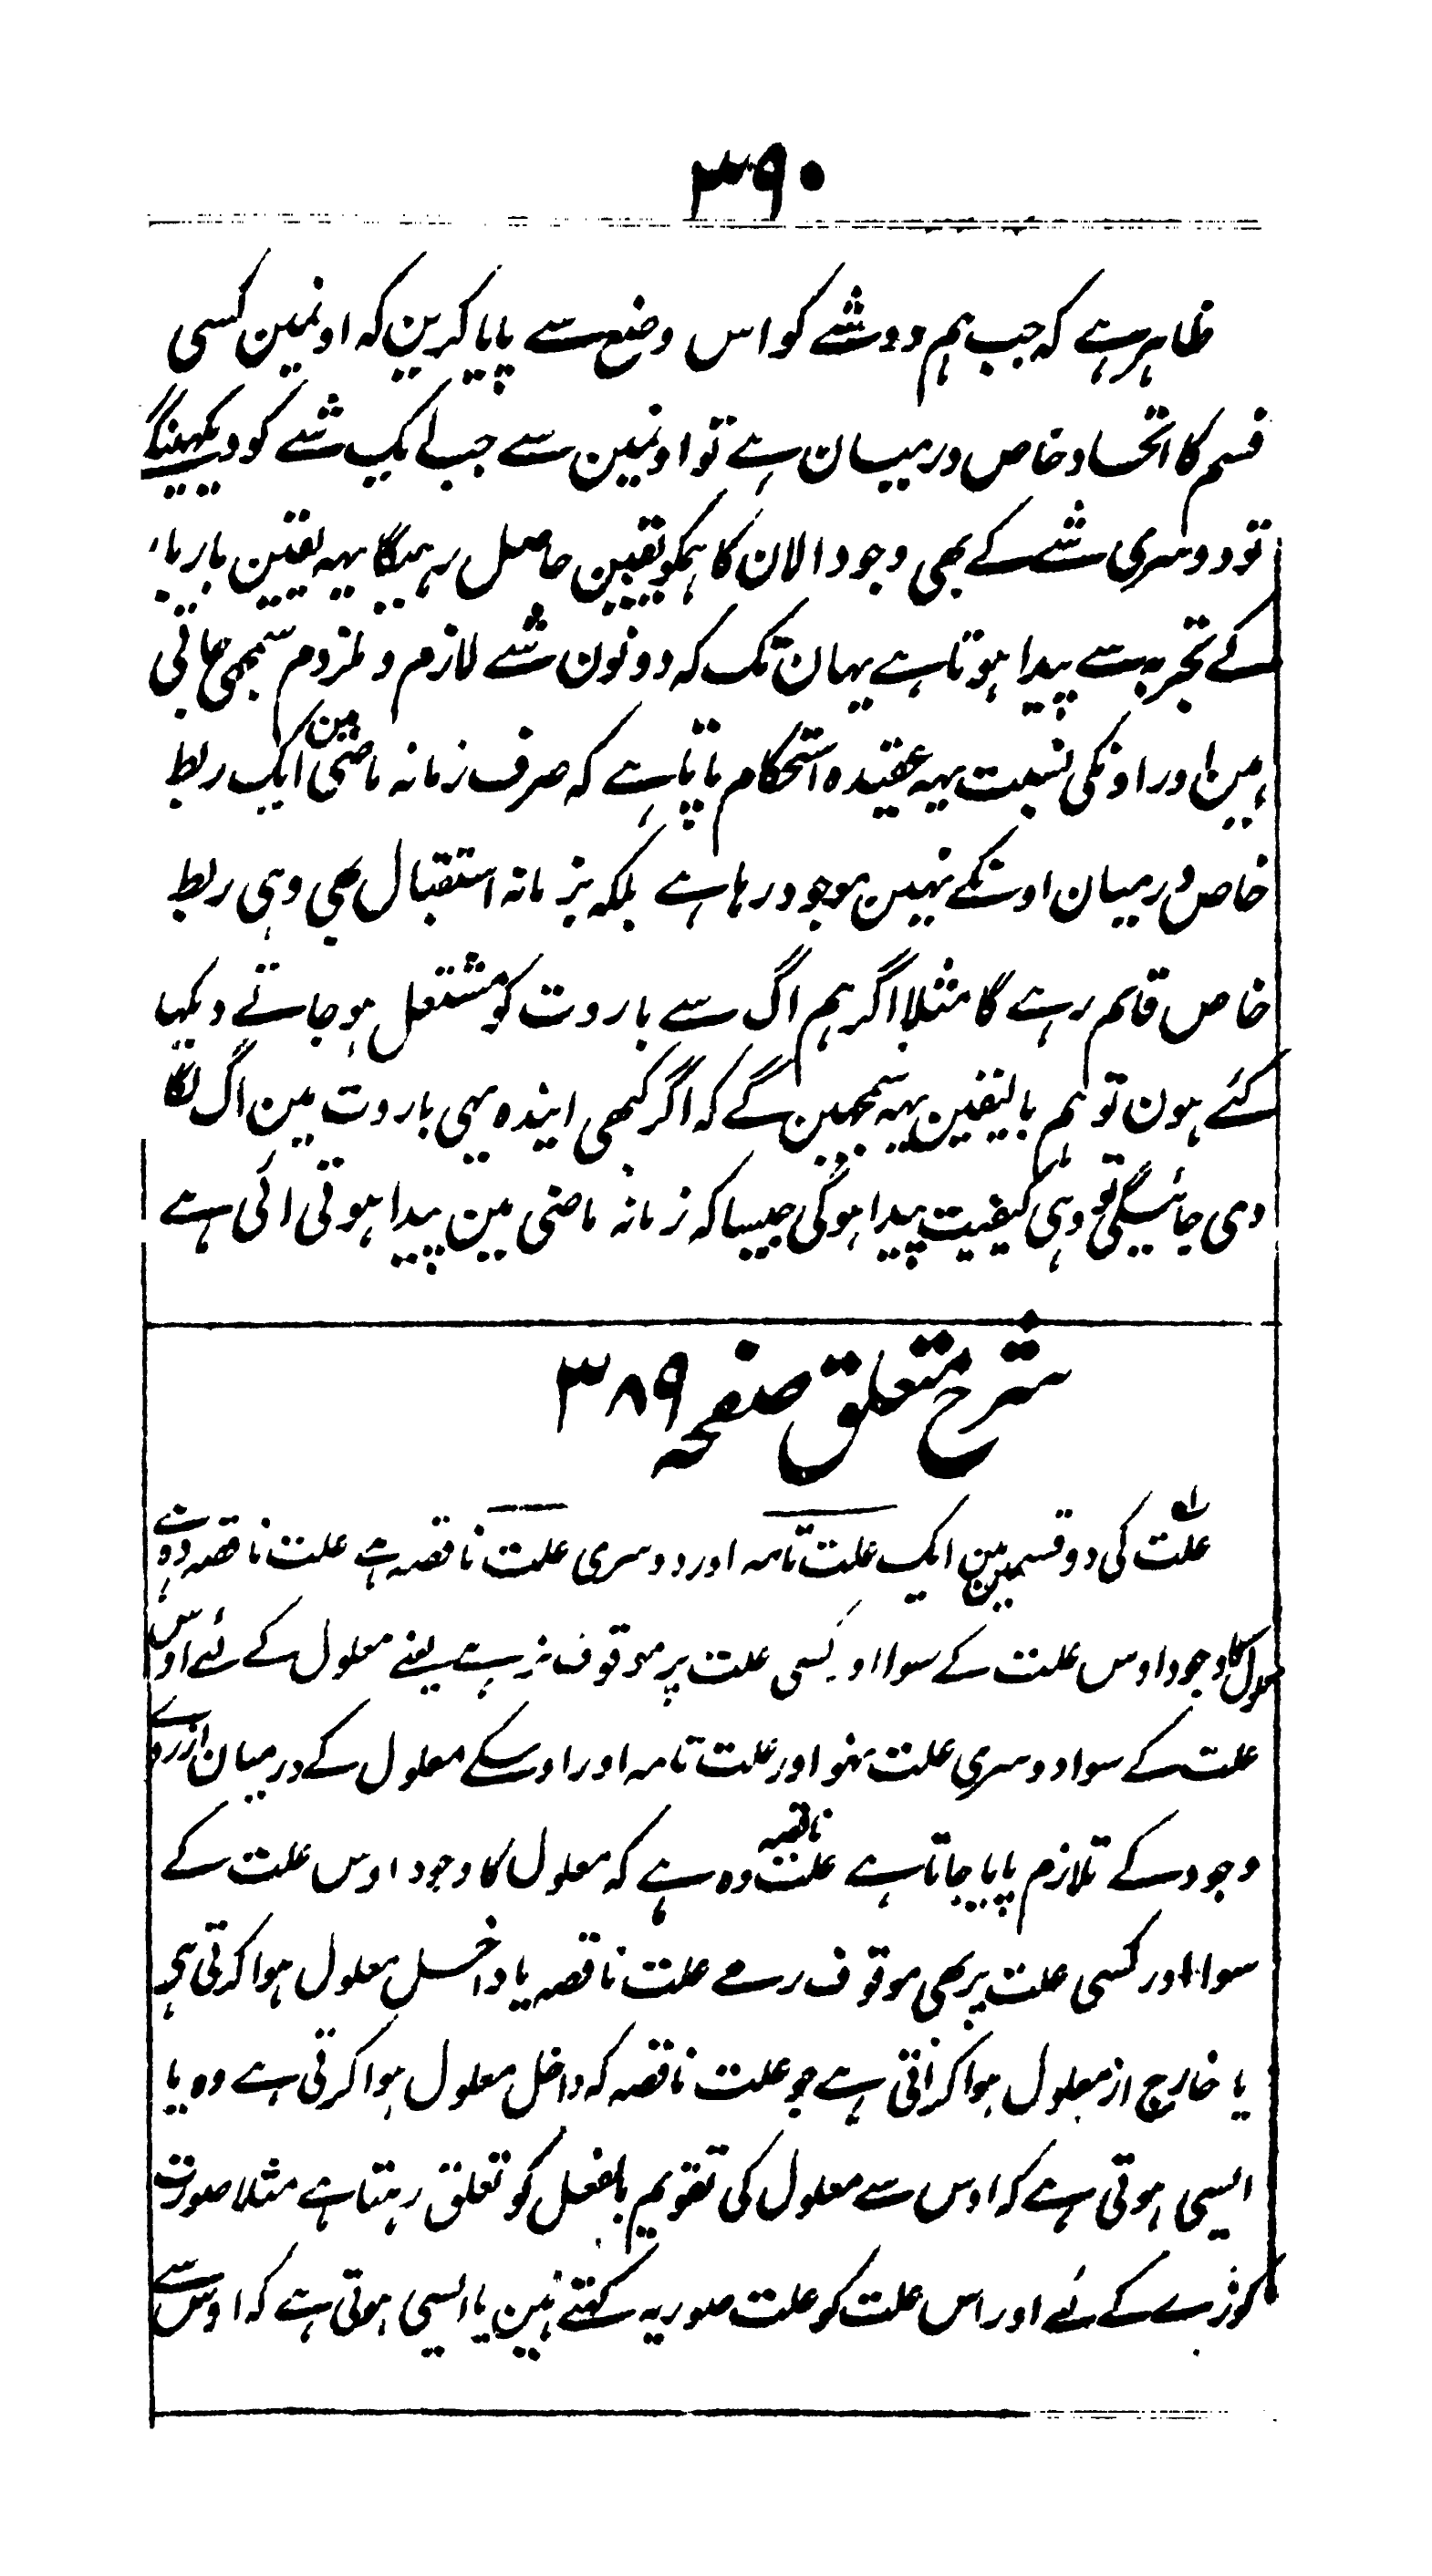 ۳۹۰
ظاہر ہے کہ جب ہم دو شے کو اس وضع سے پایا کرین کہ اونمین کسی
قسم کا اتحاد خاص درمیان ہے تو اونمین سے جب ایک شے کو دیکہینگے
تو دوسری شے کے بھی وجود الان کا ہمکو یقین حاصل رہیگا یہہ یقین بار بار
کے تجربہ سے پیدا ہوتا ہے یہان تک کہ دونون شے لازم و ملزوم سمجھی جاتی
ہین اور اونکی نسبت یہہ عقیدہ استحکام پاتا ہے کہ صرف زمانہ ماضی مین ایک ربط
خاص درمیان اونکے نہین موجود رہا ہے بلکہ بزمانہ استقبال بھی وہی ربط
خاص قایم رہے گا مثلاً اگر ہم اگ سے باروت کو مشتعل ہو جاتے دیکہا
کئے ہون تو ہم بالیقین یہہ سمجھین گے کہ اگر کبھی ایندہ بہی باروت مین اگ لگا
دی جائیگی تو وہی کیفیت پیدا ہوگی جیسا کہ زمانہ ماضی مین پیدا ہوتی ائی ہے
شرح متعلق صفحہ ۳۸۹
علت کی دو قسمین ہین ایک علت تامہ اور دوسری علت ناقصہ ہے علت ناقصہ وہ ہے
معلول کا وجود اوس علت کے سوا اور کسی علت پر موقوف نرہے یعنے معلول کے لئے اوس
علت کے سوا دوسری علت نہو اور علت تامہ اور اوسکے معلول کے درمیان ازروے
وجود کے تلازم پایا جاتا ہے علت ناقصہ وہ ہے کہ معلول کا وجود اوس علت کے
سوا اور کسی علت پر بھی موقوف رہے علت ناقصہ یا داخل معلول ہوا کرتی ہی
یا خارج از معلول ہوا کرتی ہے جو علت ناقصہ کہ داخل معلول ہوا کرتی ہے وہ یا
ایسی ہوتی ہے کہ اوس سے معلول کی تقویم بالفعل کو تعلق رہتا ہے مثلا صورت
کوزے کے لئے اور اس علت کو علت صوریہ کہتے ہین یا ایسی ہوتی ہے کہ اوس سے